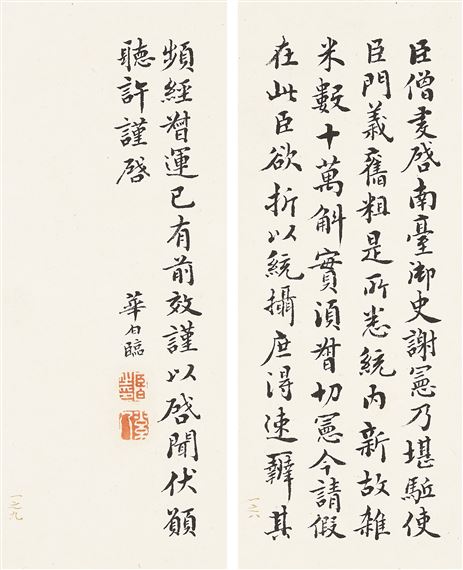 臣僧虔啓南臺御史謝憲乃堪駈使
臣門義舊粗是所悉統內新故雜
米數十萬斛實須督切憲今請假
在此臣欲折以統攝庶得速辦其
一之六
頻經督運已有前效謹以啓聞伏願
聽許謹啓
華臨
一之九